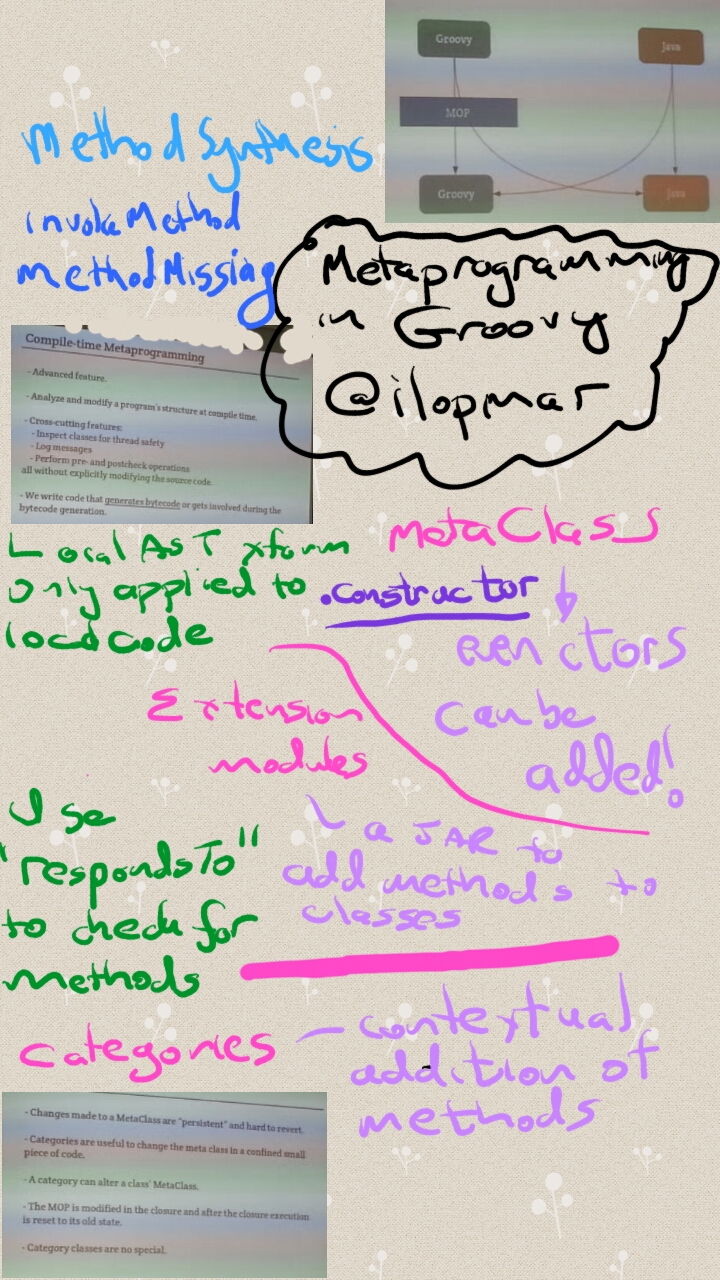 Groovy
Java
MOP
Groovy
Java
Method Synthesis
invokeMethod
methodMissing
Metaprogramming
in Groovy
@ilopmar
Compile-time Metaprogramming
- Advanced feature.
- Analyze and modify a program's structure at compile time.
- Cross-cutting features:
- Inspect classes for thread safety
- Log messages
- Perform pre- and postcheck operations
all without explicitly modifying the source code.
- We write code that generates bytecode or gets involved during the
bytecode generation.
Local AST xform
only applied to
local code
metaClass
.constructor
even ctors
can be
added!
Extension
modules
a JAR to
add methods to
classes
Use
"respondsTo"
to check for
methods
Categories - contextual
addition of
methods
- Changes made to a MetaClass are "persistent" and hard to revert.
- Categories are useful to change the meta class in a confined small
piece of code.
- A category can alter a class' MetaClass.
- The MOP is modified in the closure and after the closure execution
is reset to its old state.
- Category classes are no special.